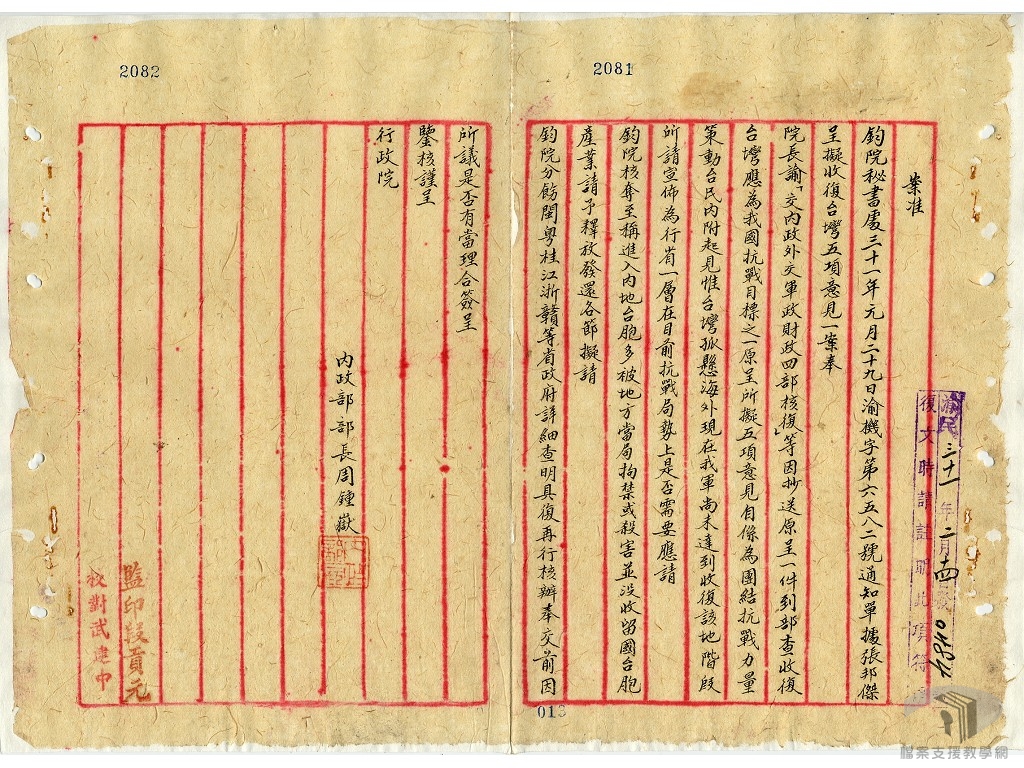 2081
案准
鈞院秘書處三十一年元月二十九日渝機字第六五八二號通知單據張邦傑
呈擬收復台灣五項意見一案奉
院長諭「交內政外交軍政財政四部核復」等因抄送原呈一件到部查收復
台灣應為我國抗戰目標之一原呈所擬五項意見自係為團結抗戰力量
策動台民內附起見惟台灣孤懸海外現在我軍尚未達到收復該地階段
所請宣佈為行省一層在目前抗戰局勢上是否需要應請
鈞院核奪至稱進入內地台胞多被地方當局拘禁或殺害並沒收留國台胞
產業請予釋放發還各節擬請
鈞院分飭閩粵桂江浙贛等省政府詳細查明具復再行核辦奉交前因
2082
所議是否有當理合簽呈
鑒核謹呈
行政院
內政部部長周鍾嶽
監印段貢元
校對武建中
渝民三十一年二月十四發
復文時請註明此項
013
檔案支援教學網